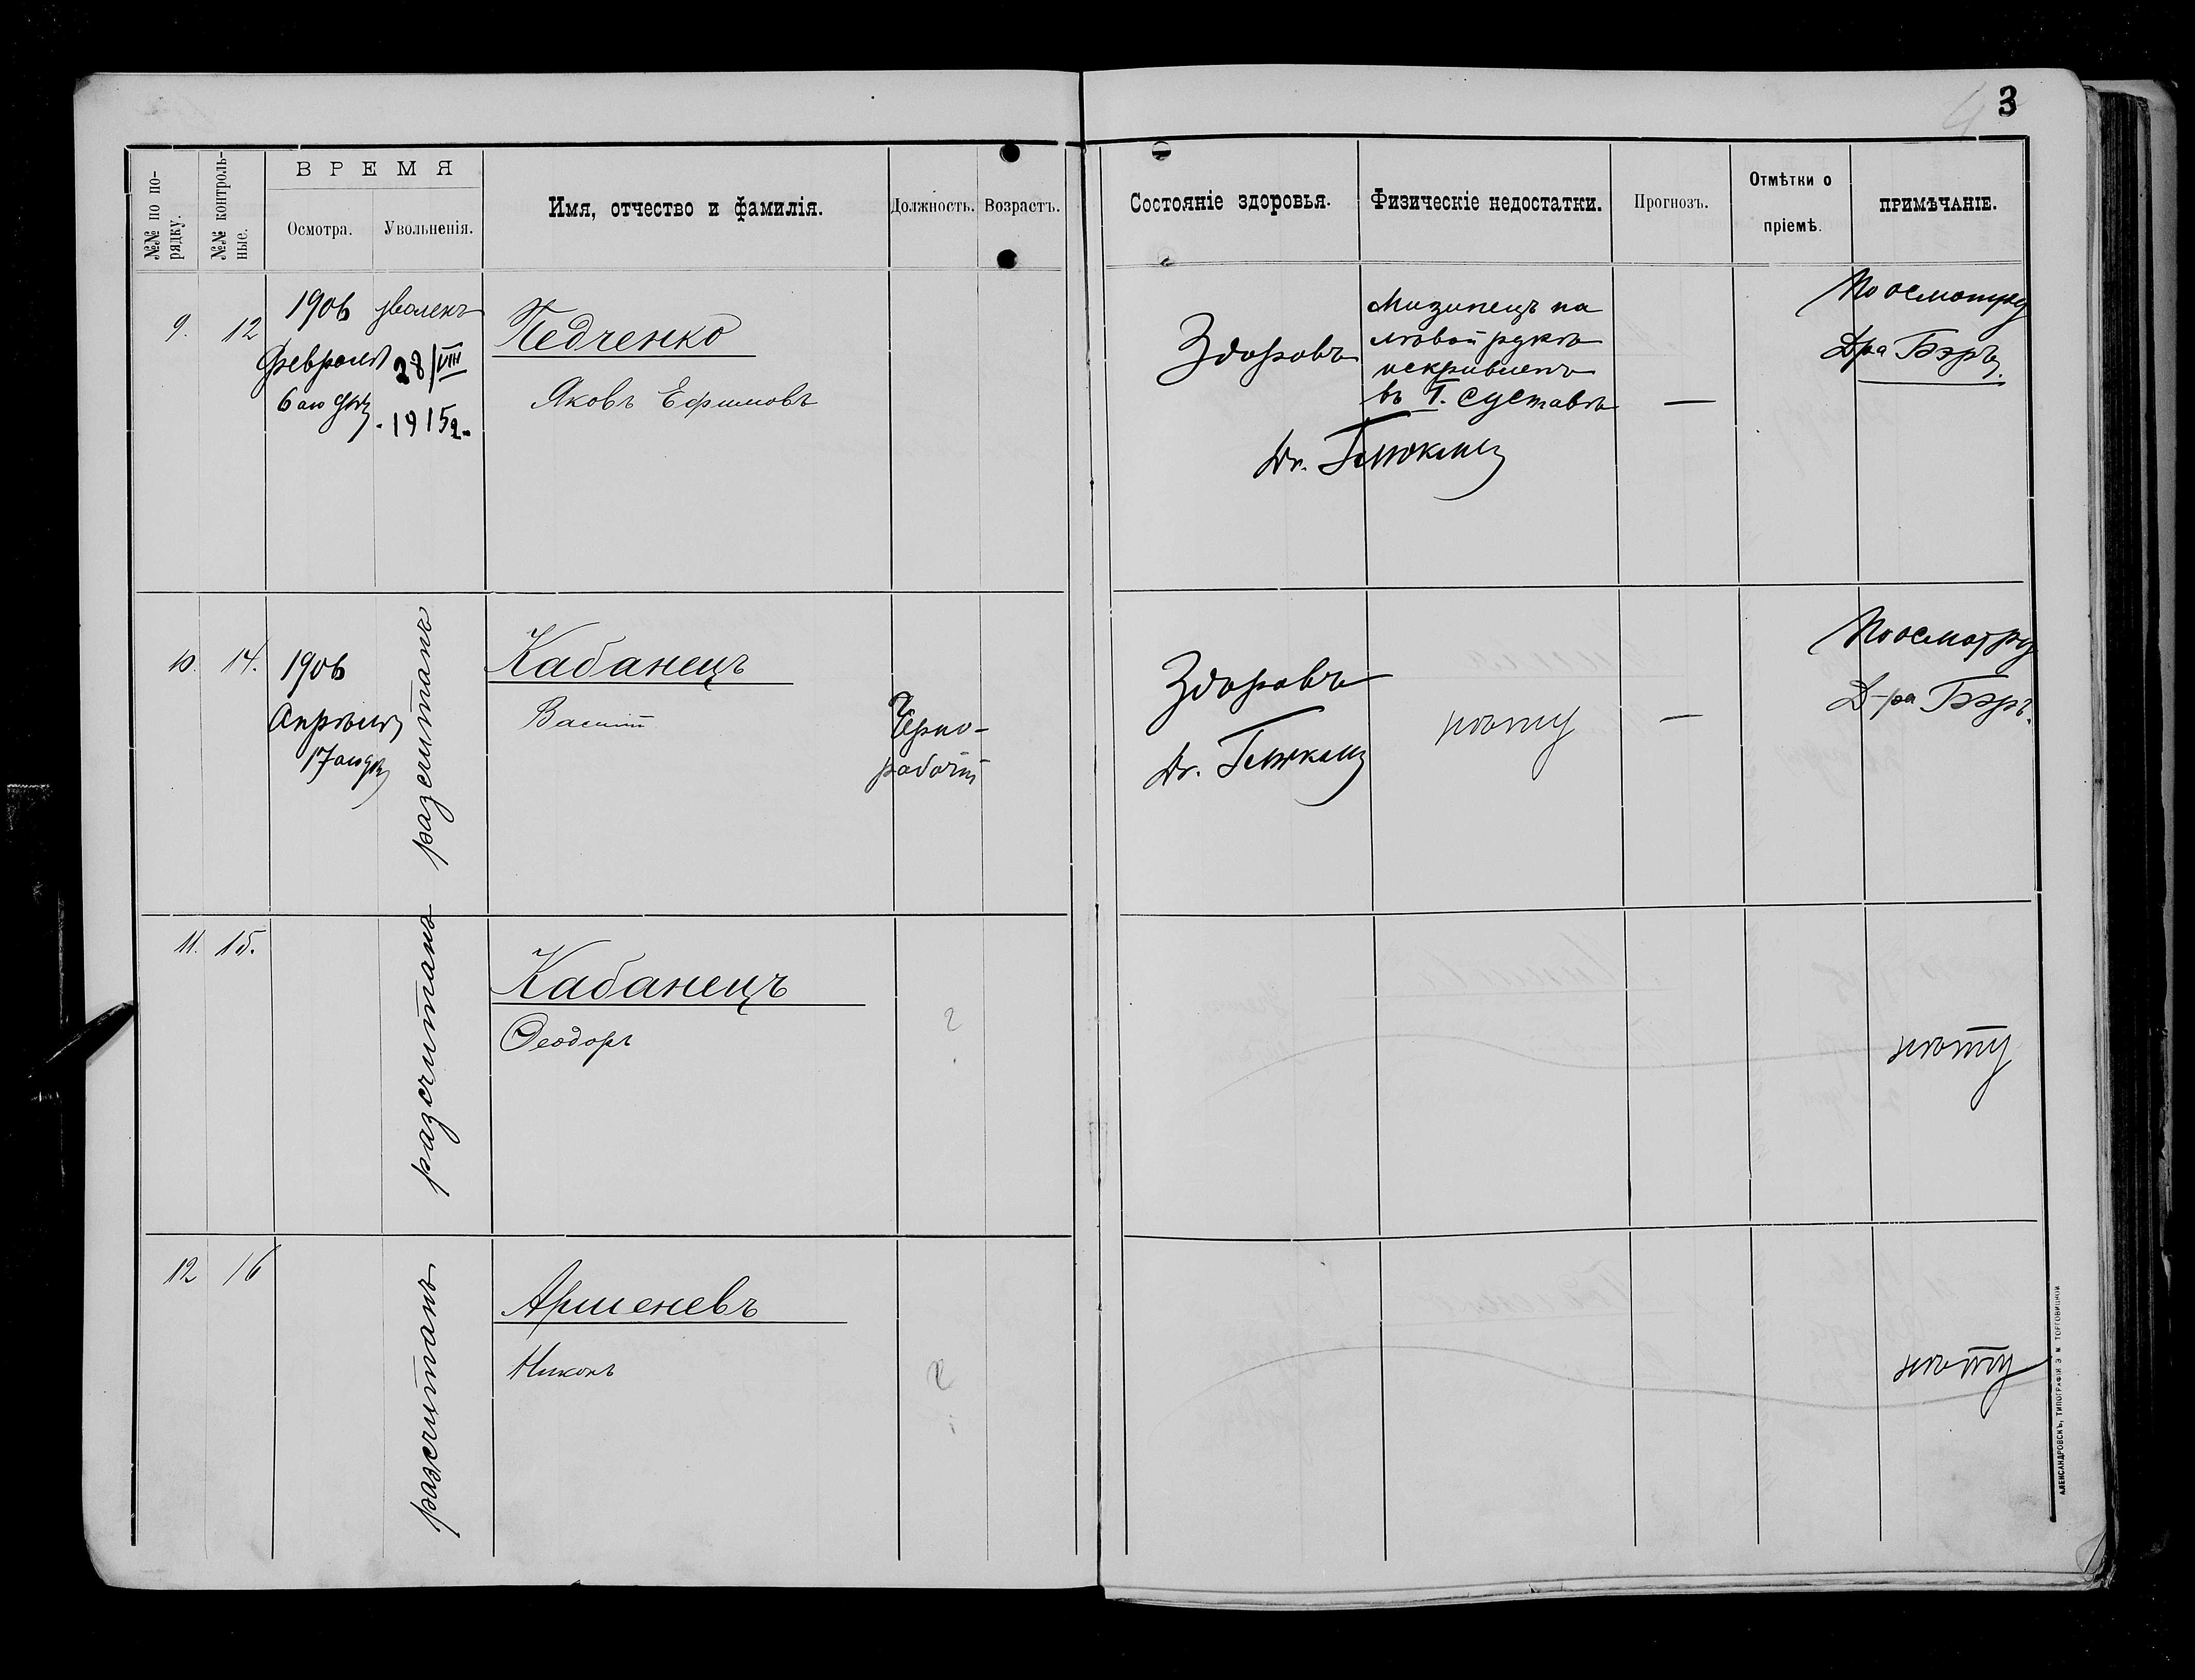 3
№№ по по-
рядку.
№№ контроль-
ные.
ВРЕМЯ
Осмотра.
Увольненія.
Имя, отчество и фамилія.
Должность.
Возрастъ.
Состояніе здоровья.
Физическіе недостатки.
Прогнозъ.
Отмѣтки о
пріемѣ.
ПРИМѢЧАНІЕ.
9.
12
1906
Февраля
6 аго дня
уволенъ
28/VIII
1915 г.
Педченко
Яковъ Ефимовъ
Здоровъ
Мизинецъ на
лѣвой рукѣ
искривленъ
въ I. суставѣ
—
По осмотру
Д-ра Бэръ.
Dr.
10.
14.
1906
Апрѣля
17 аго дня
разсчитанъ
Кабанецъ
Василій
Черно-
рабочій
Здоровъ
Dr.
нѣту
—
По осмотру
Д-ра Бэръ.
11.
15.
разсчитанъ
Кабанецъ
Ѳеодоръ
?
нѣту
12
16
разсчитанъ
Аршеневъ
Никонъ
?
нѣту
АЛЕКСАНДРОВСКЪ, ТИПОГРАФІЯ Э. М. ТОРГОВИЦКОЙ